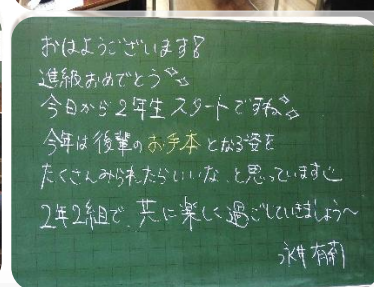 おはようございます!
進級おめでとう✨
今日から2年生スタートですね✨
今年は後輩のお手本となる姿を
たくさんみられたらいいな、と思っています
2年2組で、共に楽しく過ごしていきましょう〜
永井 有莉